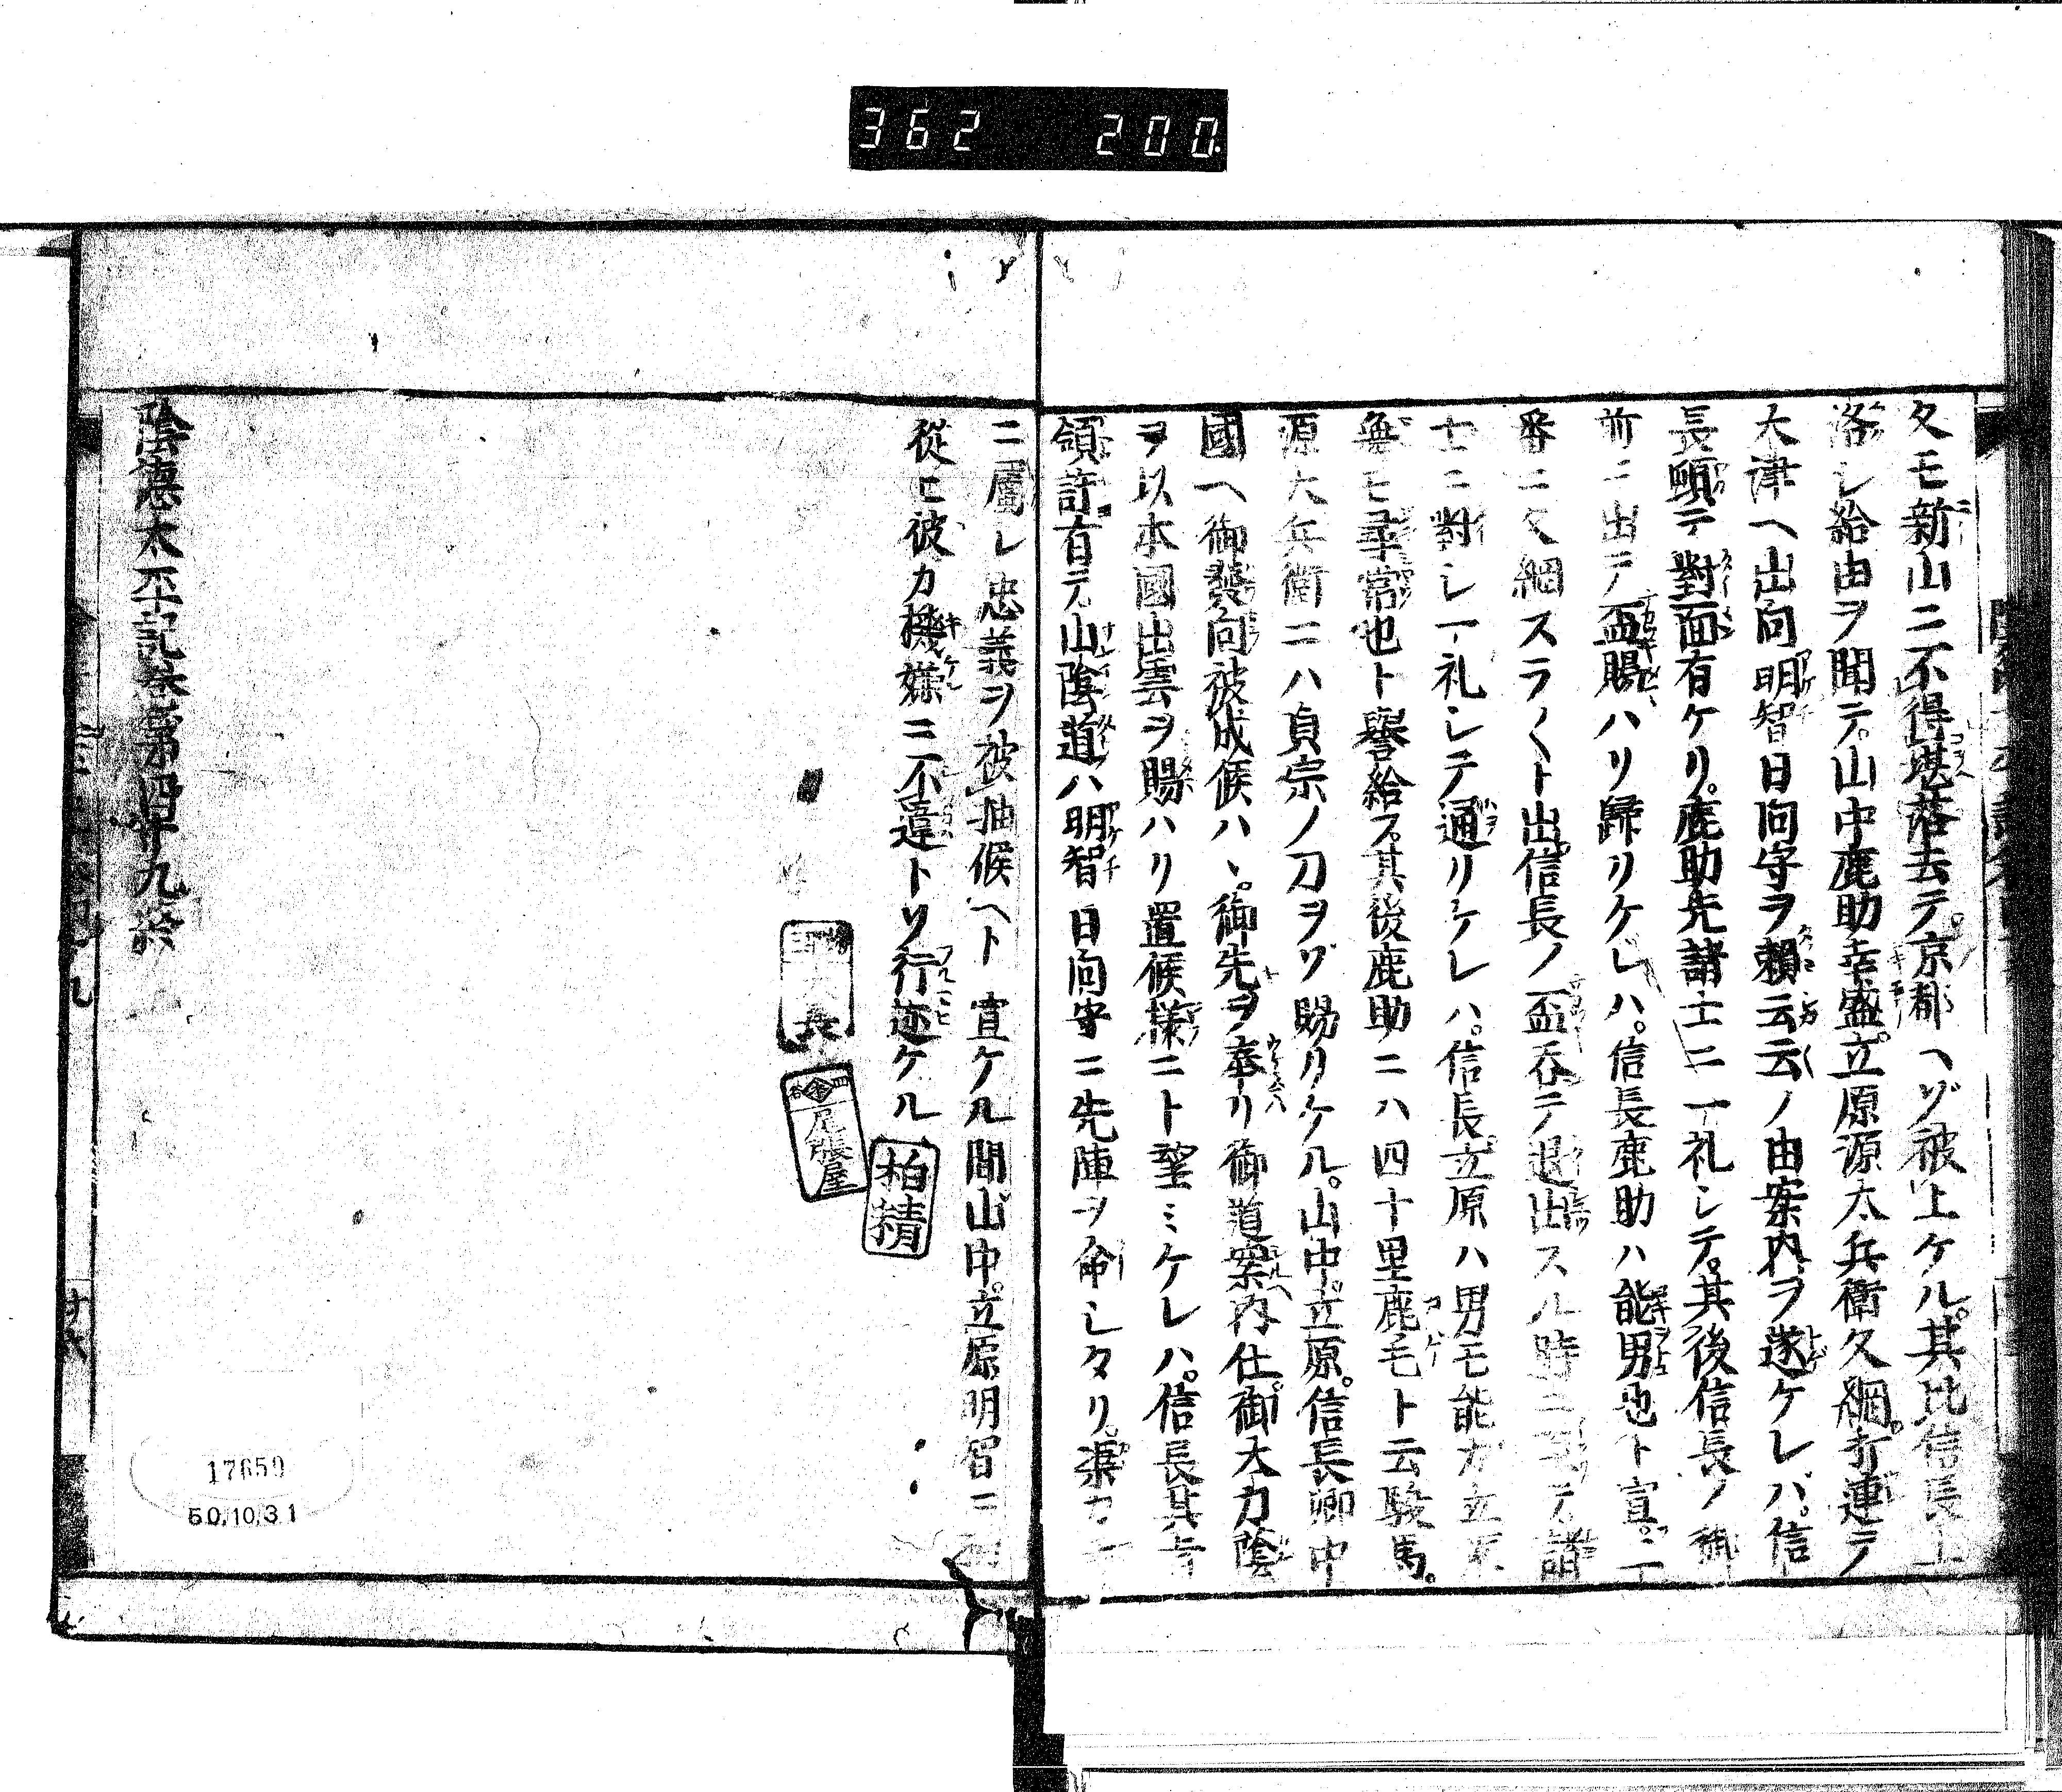 362 200
久モ新山ニ不得堪落去テ。京都ヘゾ被上ケル。其比信長上
洛シ給由ヲ聞テ。山中鹿助幸盛。立原源太兵衛久綱。打連テ
大津ヘ出向明智日向守ヲ頼云云ノ由案内ヲ遂ケレバ。信
長頓テ對面有ケリ。鹿助先諸士ニ一礼シテ。其後信長ノ御
前ニ出テ盃賜ハリ歸リケレハ。信長鹿助ハ能男也ト宣。二
番ニ久綱スラ〱ト出。信長ノ盃呑テ退出スル時ニ テ諸
士ニ對シ一礼シテ通リケレハ。信長立原ハ男モ能カ立
無ヒ尋常也ト譽給フ。其後鹿助ニハ四十里鹿毛ト云駿馬。
源太兵衛ニハ貞宗ノ刀ヲゾ賜リケル。山中。立原。信長卿中
國ヘ御發向被成候ハヽ。御先ヲ奉リ御道案内仕。御太力陰
ヲ以本國出雲ヲ賜ハリ置候様ニト望ミケレハ。信長其
領許有テ。山陰道ハ明智日向守ニ先陣ヲ命シタリ。渠カ
ニ屬シ忠義ヲ被抽候ヘト宣ケル間山中。立原明智ニ
從ヒ彼カ機嫌ニ不違トソ行迹ケル
柏精
尾張屋
陰德太平記卷第四十九終
17659
50.10.31